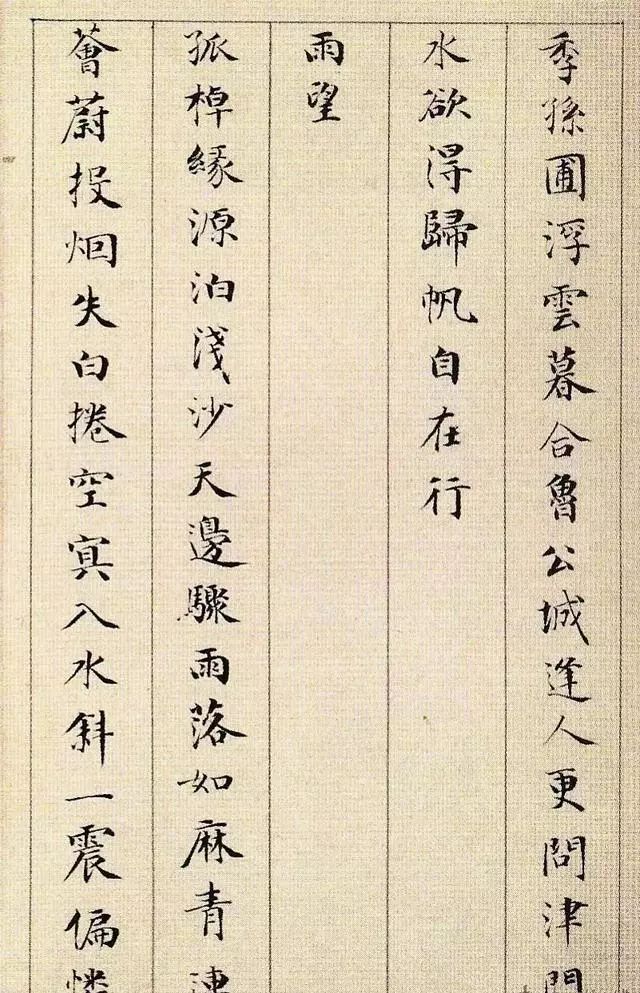 季孫圃浮雲暮合魯公城逢人更問津
水欲得歸帆自在行
雨望
孤棹緣源泊淺沙天邊驟雨落如麻青
薈蔚投烟失白捲空冥入水斜一震偏